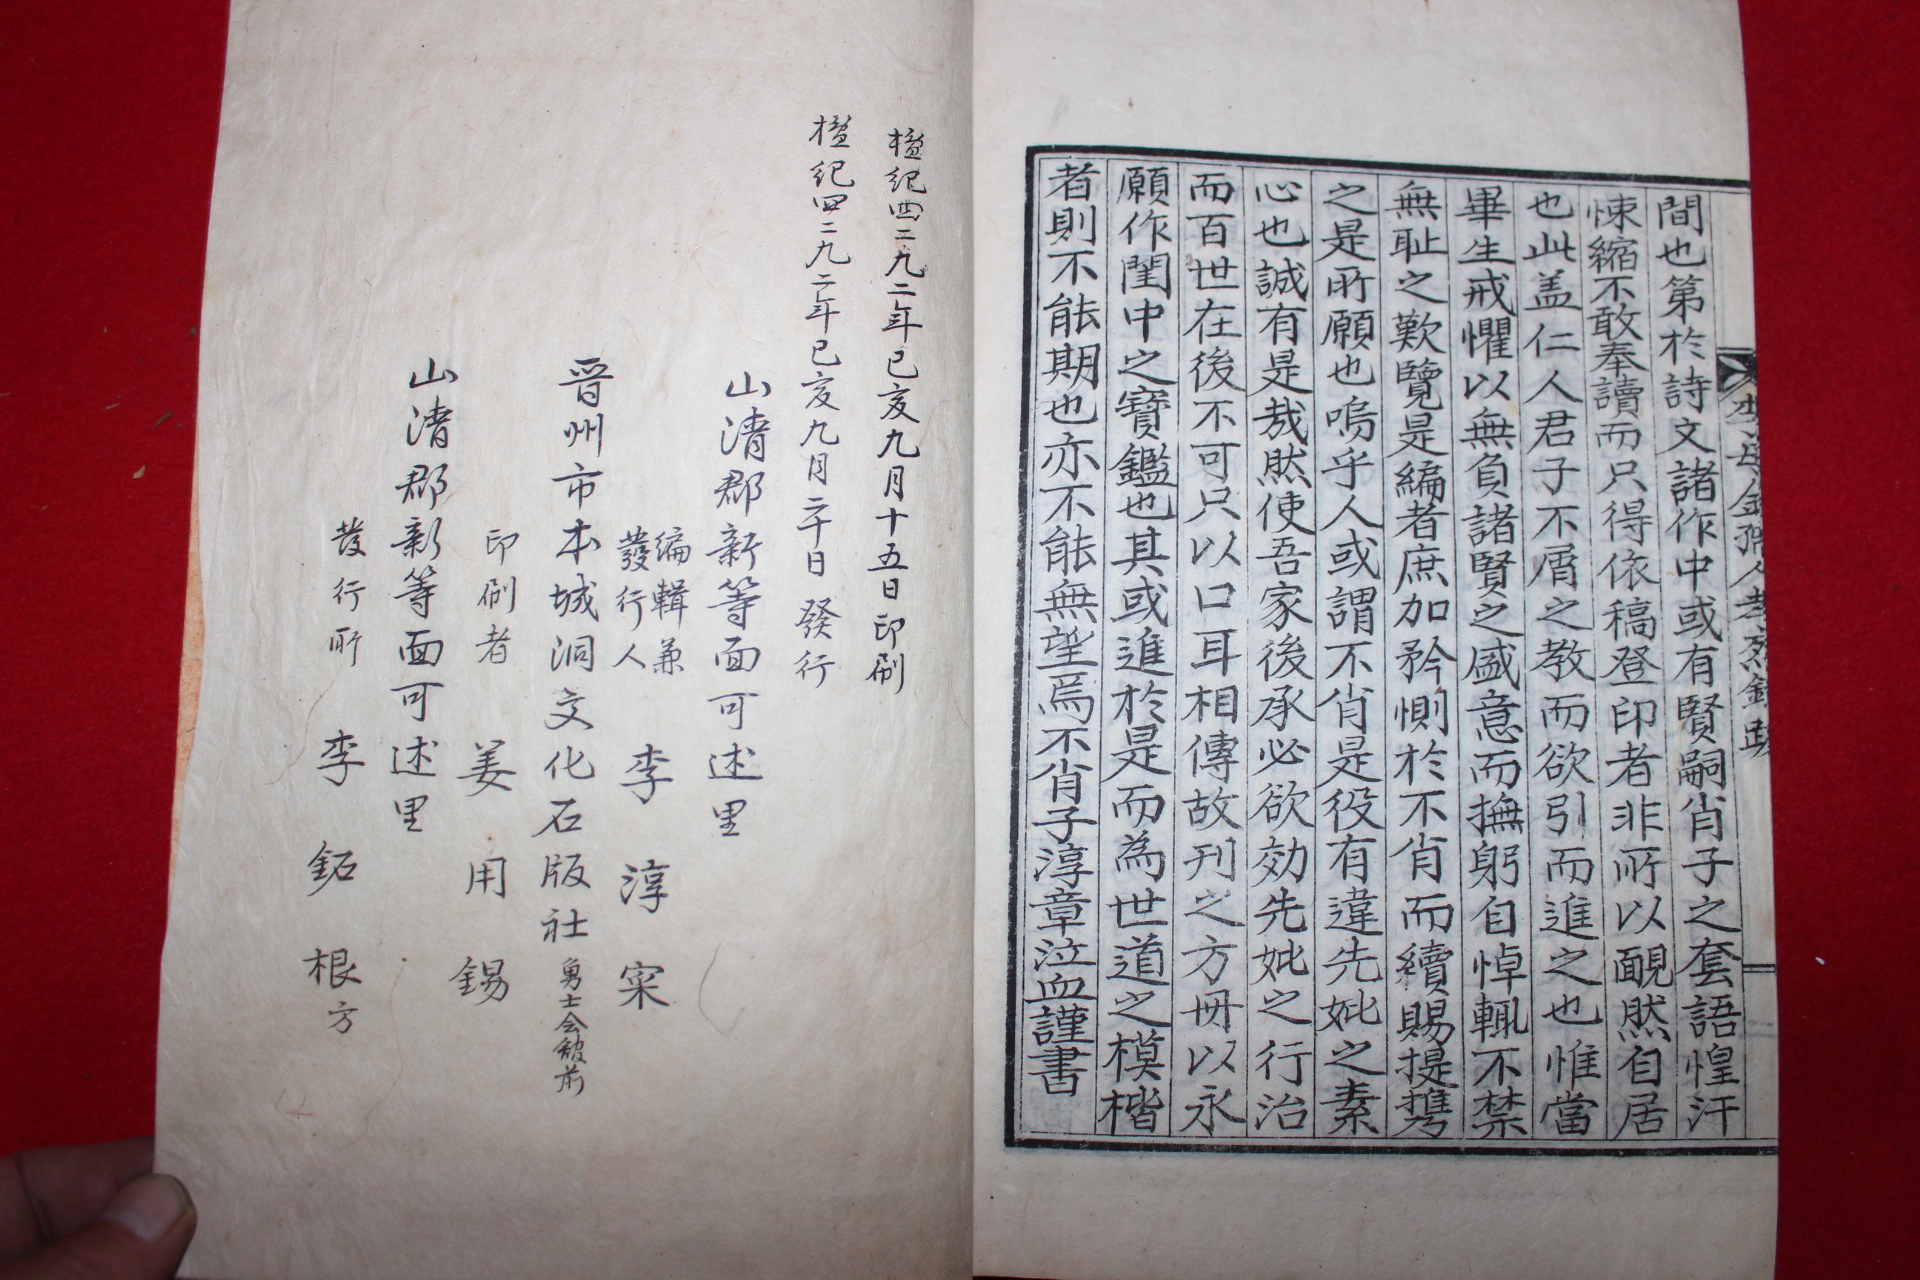 間也第於詩文諸作中或有賢嗣肖子之套語惶汗
悚縮不敢奉讀而只得依稿登印者非所以靦然自居
也此盖仁人君子不屑之教而欲引而進之也惟當
畢生戒懼以無負諸賢之盛意而撫躬自悼輒不禁
無耻之歎覽是編者庶加矜惻於不肖而續賜提携
之是所願也嗚乎人或謂不肖是役有違先妣之素
心也誠有是哉然使吾家後承必欲効先妣之行治
而百世在後不可只以口耳相傳故刊之方冊以永
願作閨中之寶鑑也其或進於是而為世道之模楷
者則不能期也亦不能無望焉不肖子淳章泣血謹書
檀紀四二九二年己亥九月十五日印刷
檀紀四二九二年己亥九月二十日發行
山清郡新等面可述里
編輯兼
發行人 李淳
晋州市本城洞文化石版社 勇士会舘前
印刷者 姜用錫
山清郡新等面可述里
發行所 李鉐根方